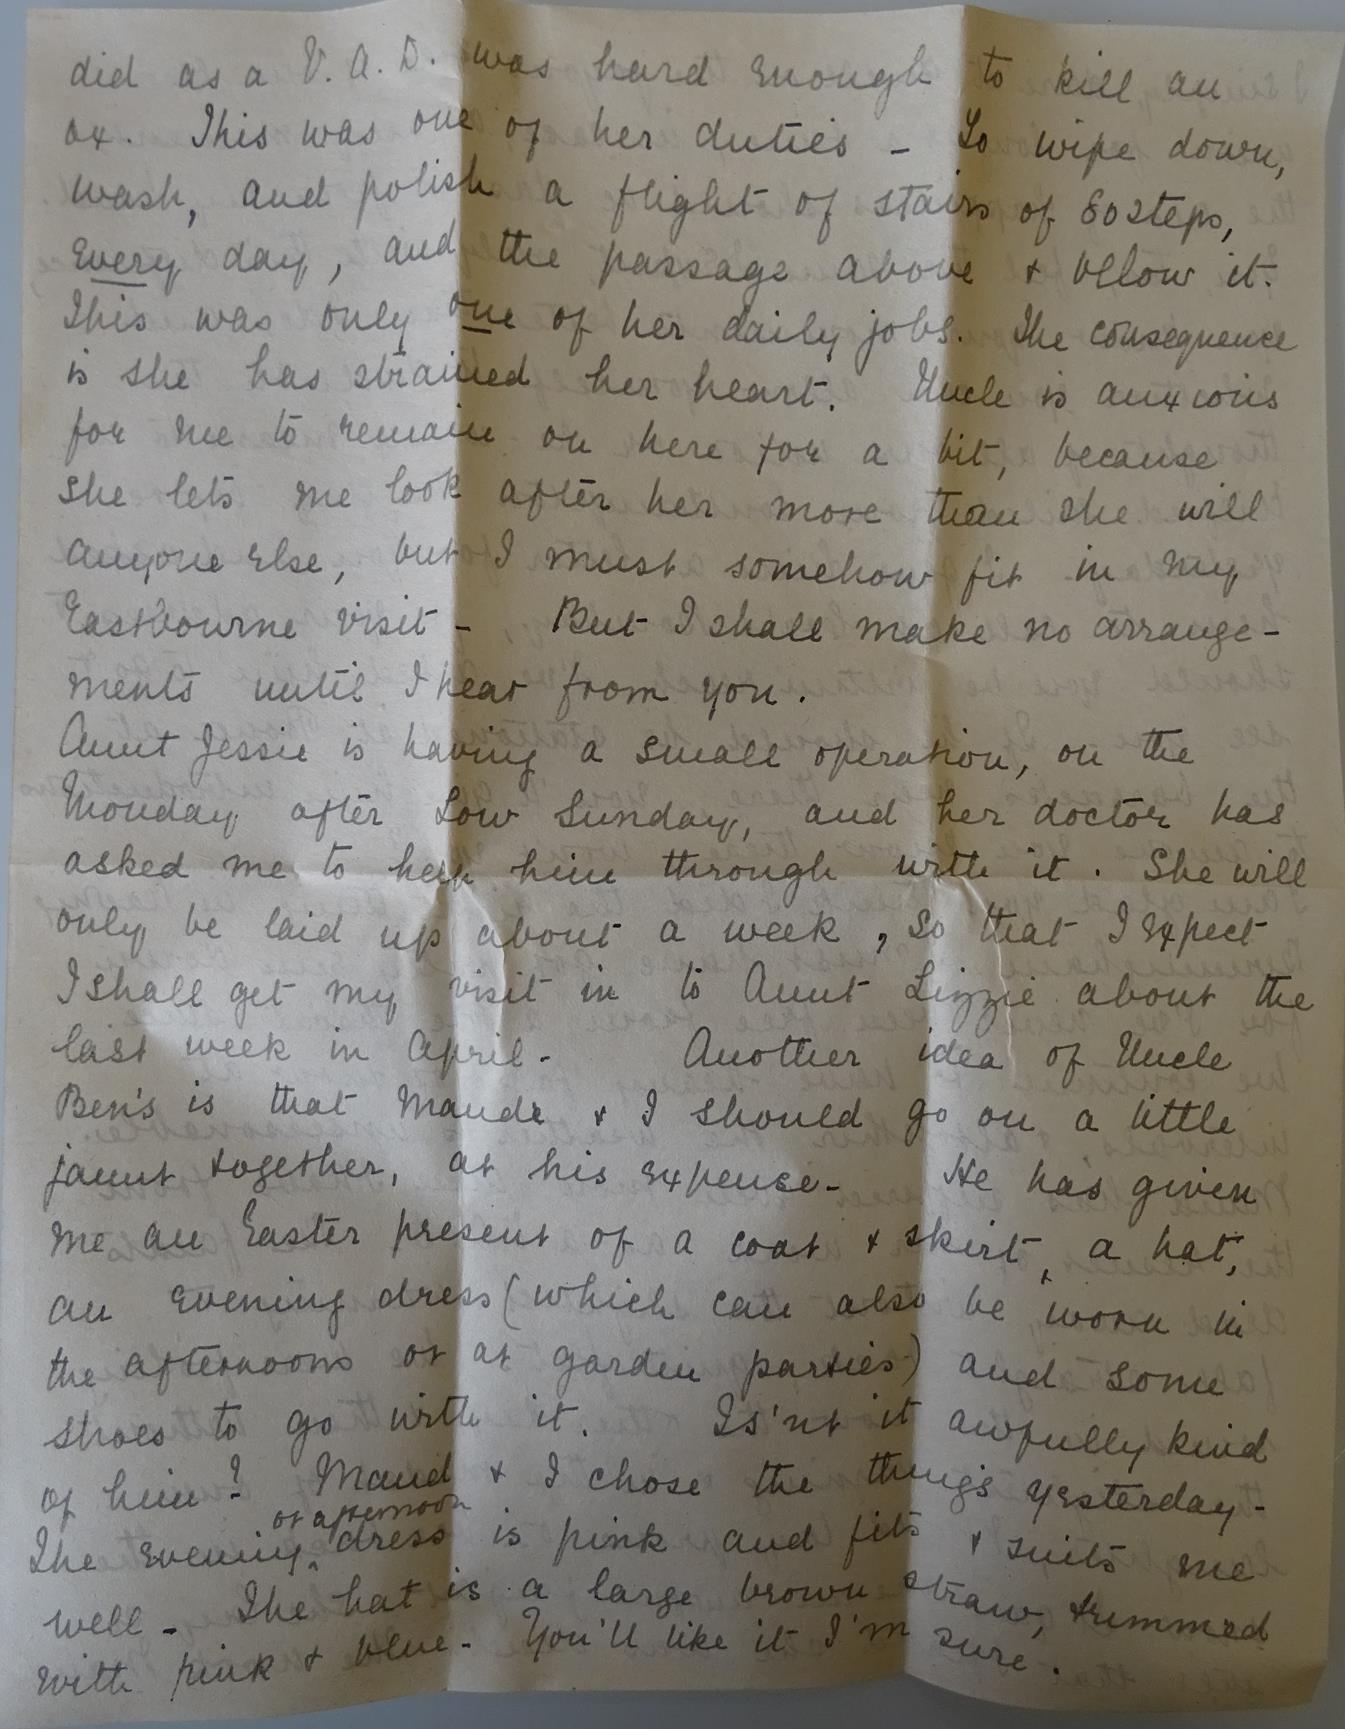 did as a V. A. D. was hard enough to kill an
ox. This was one of her duties - To wipe down,
wash, and polish a flight of stairs of 80 steps,
every day, and the passage above & below it.
This was only one of her daily jobs. The consequence
is she has strained her heart. Uncle is anxious
for me to remain on here for a bit, because
she lets me look after her more than she will
anyone else, but I must somehow fit in my
Eastbourne visit - But I shall make no arrange-
ments until I hear from you.
Aunt Jessie is having a small operation, on the
Monday after Low Sunday, and her doctor has
asked me to help him through with it. She will
only be laid up about a week, so that I expect
I shall get my visit in to Aunt Lizzie about the
last week in April - Another idea of Uncle
Ben's is that Maude & I should go on a little
jaunt together, at his expense - He has given
me an Easter present of a coat & skirt, a hat,
an evening dress (which can also be worn in
the afternoons or at garden parties) and some
shoes to go with it. Is'nt it awfully kind
of him? Maud & I chose the things yesterday -
The evening or afternoon dress is pink and fits & suits me
well - The hat is a large brown straw, trimmed
with pink & blue - You'll like it I'm sure.